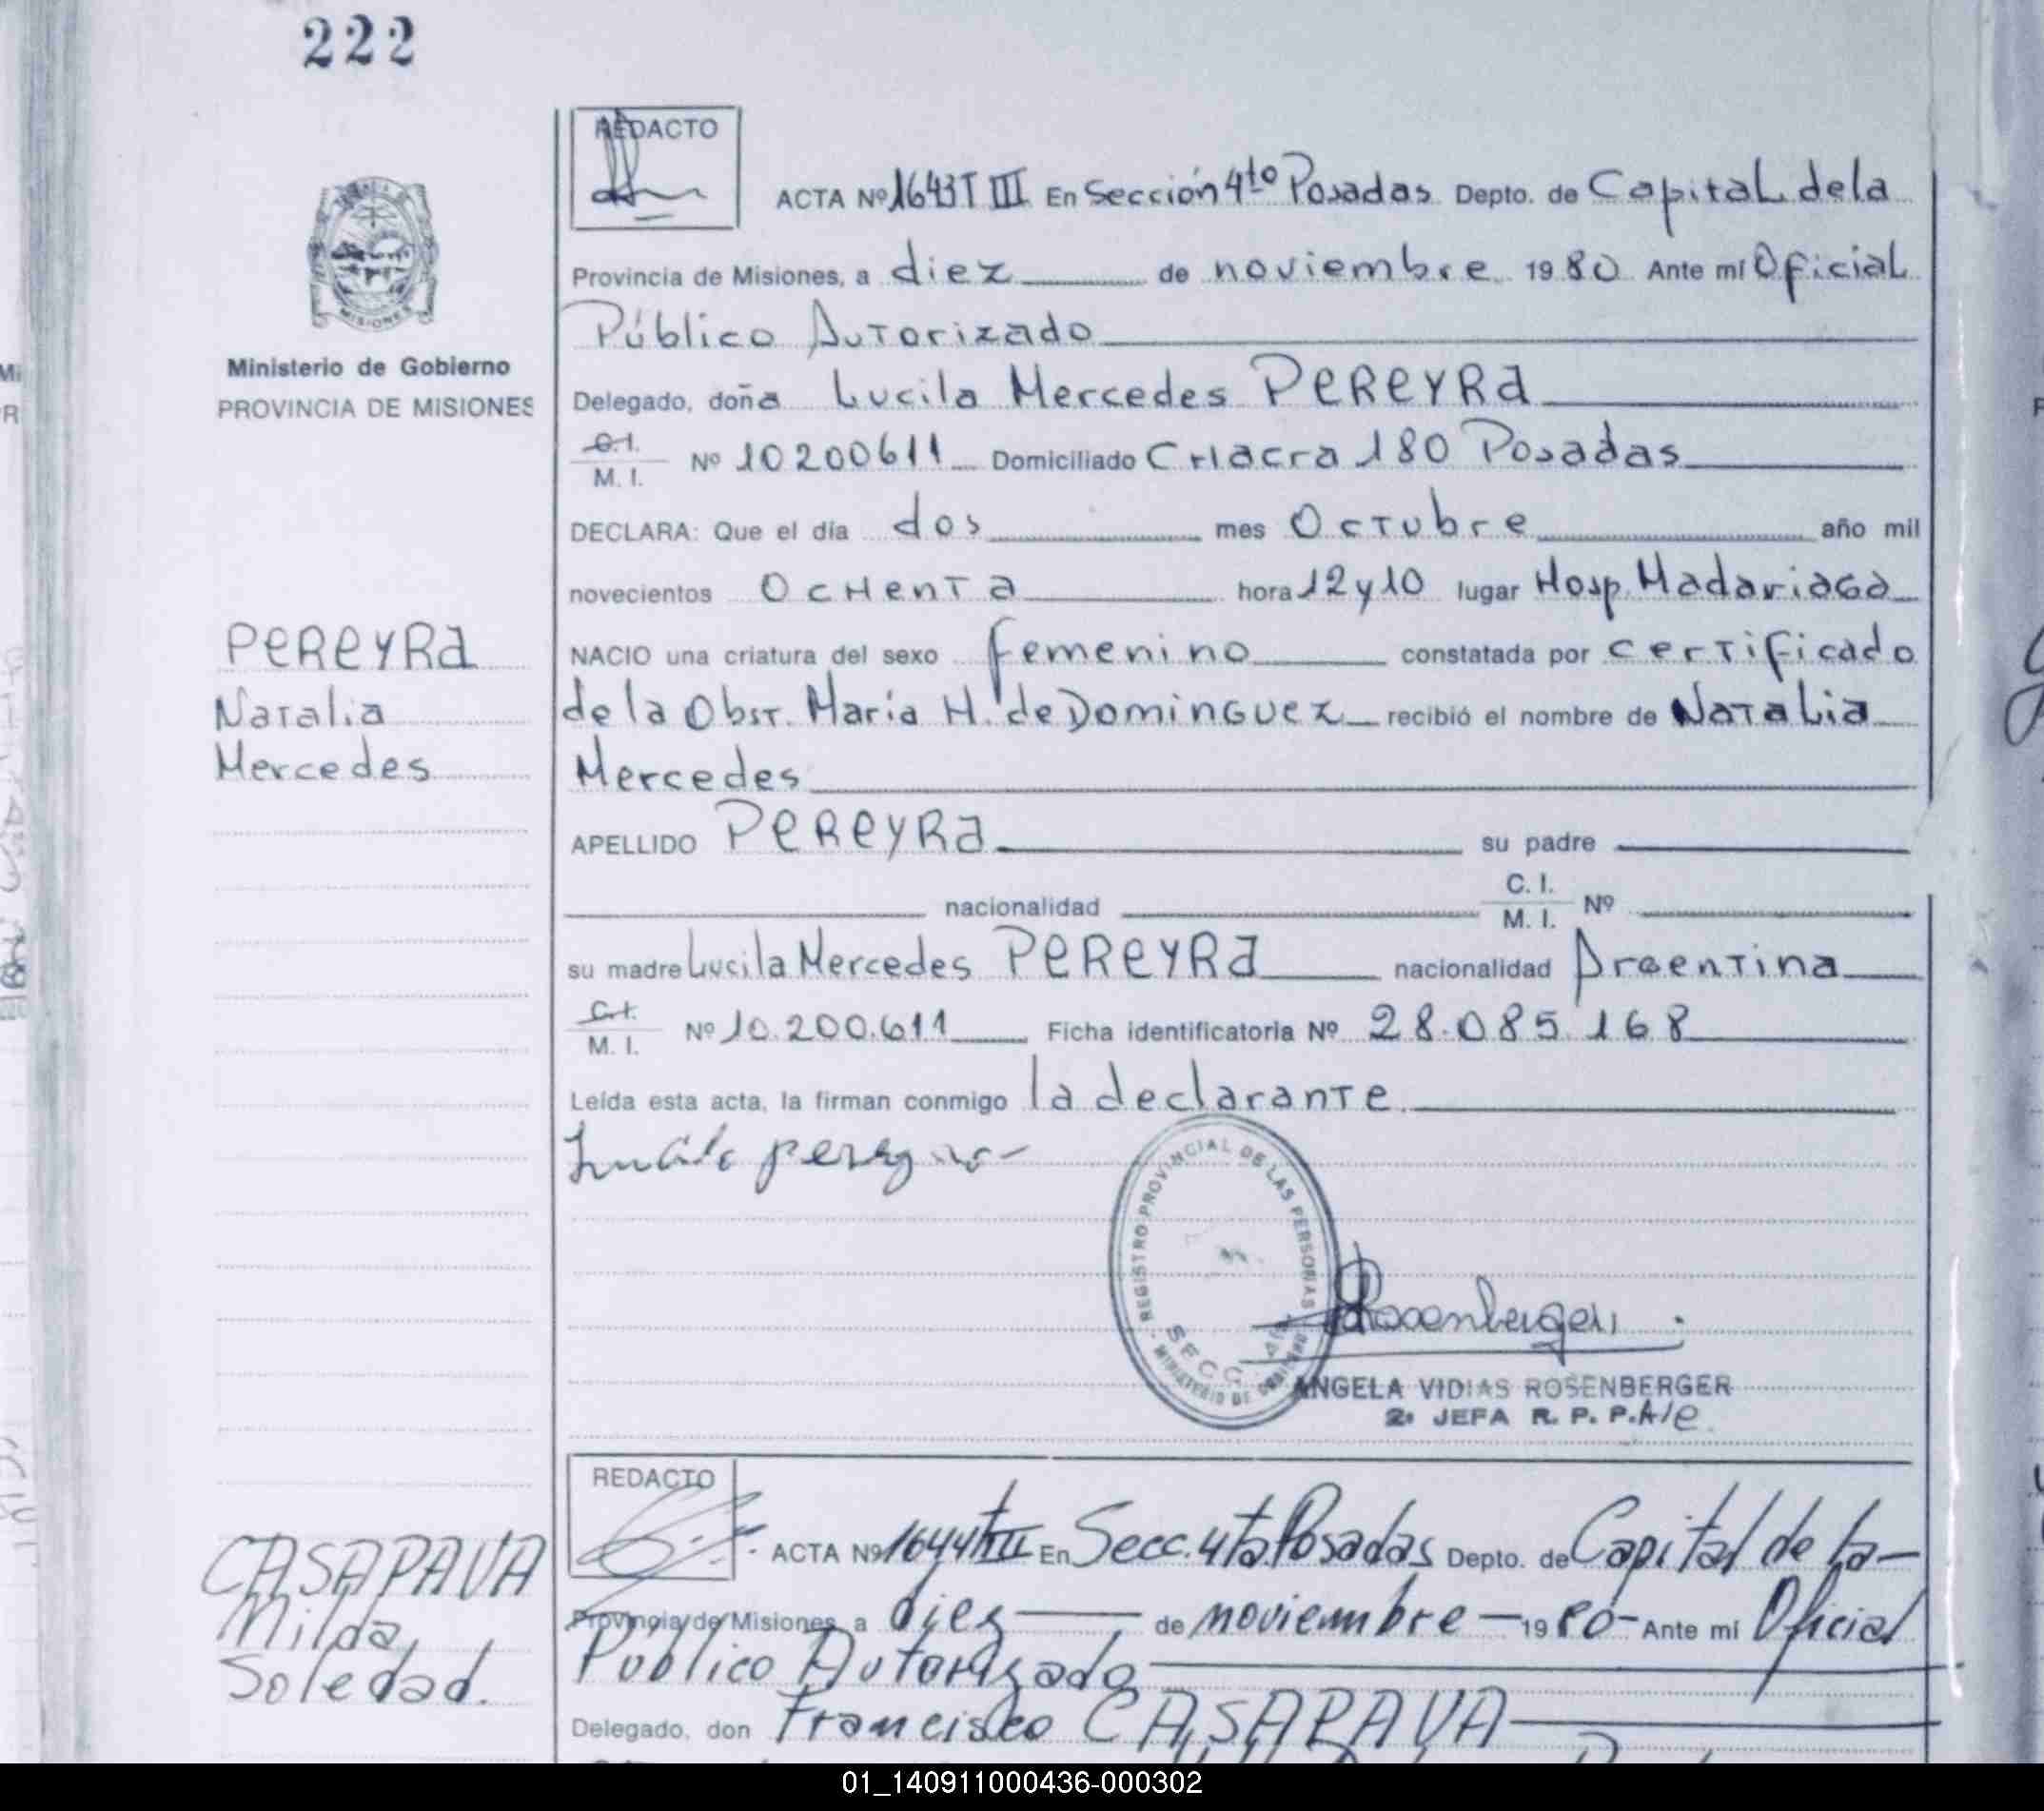 222
REDACTO
ACTA Nº 1643 T III En Sección 4to Posadas Depto. de Capital de la
Provincia de Misiones, a diez de noviembre 1980 Ante mí Oficial
Público Autorizado
Delegado, doña Lucila Mercedes PEREYRA
C.I. M. I. Nº 10200611 Domiciliado CHacra 180 Posadas
DECLARA: Que el día dos mes Octubre año mil
novecientos OcHenTa hora 12 y 10 lugar Hosp. Madariaga
NACIO una criatura del sexo femenino constatada por certificado
de la Obst. María H. de Dominguez recibió el nombre de Natalia
Mercedes
APELLIDO PEREYRA su padre
nacionalidad C. I. M. I. Nº
su madre Lucila Mercedes PEREYRA nacionalidad Argentina
C.I. M. I. Nº 10.200.611 Ficha identificatoria Nº 28.085.168
Leída esta acta, la firman conmigo la declarante.
MISIONES
Ministerio de Gobierno
PROVINCIA DE MISIONES
PEREYRA
Natalia
Mercedes
REGISTRO PROVINCIAL DE LAS PERSONAS
SECC. 4ª
MINISTERIO DE GOBIERNO
Rosenberger
ANGELA VIDIAS ROSENBERGER
2ª JEFA R. P. P. A/C
REDACTO
ACTA Nº 1644 T III En Secc. 4ta Posadas Depto. de Capital de la
Provincia de Misiones, a diez de noviembre 1980 Ante mí Oficial
Público Autorizado
Delegado, don Francisco CASAPAVA
CASAPAVA
Milda
Soledad.
01_140911000436-000302